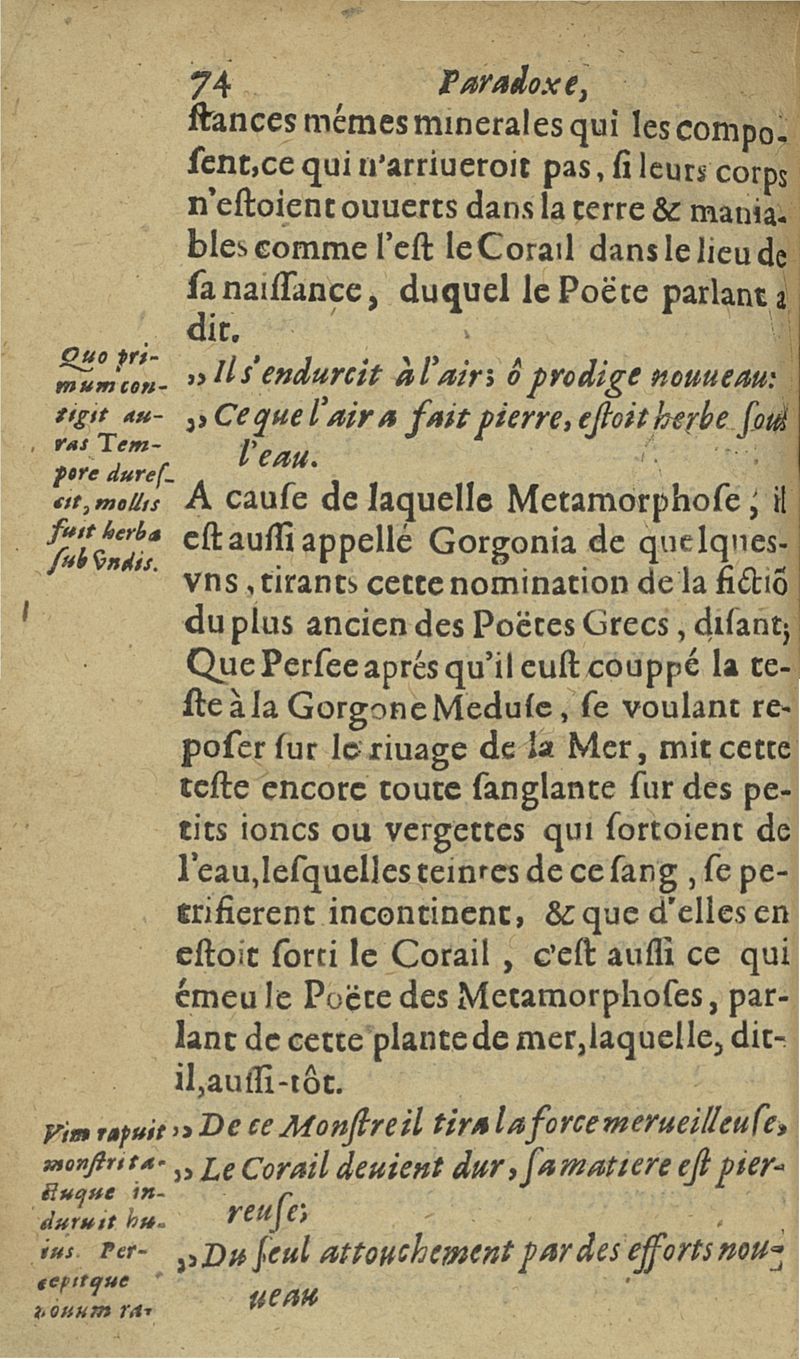 74 Paradoxe,
ſtances mémes minerales qui les compo-
ſent, ce qui n'arriueroit pas, ſi leurs corps
n'eſtoient ouuerts dans la terre & mania-
bles comme l'eſt le Corail dans le lieu de
ſa naiſſance, duquel le Poëte parlant a
dit.
„ Il s'endurcit à l'air; ô prodige nouueau:
„ Ce que l'air a fait pierre, eſtoit herbe ſous
l'eau.
Quo pri-
mum con-
tigit au-
ras Tem-
pore dureſ-
cit, mollis
fuit herba
ſub vndis.
A cauſe de laquelle Metamorphoſe, il
eſt auſſi appellé Gorgonia de quelques-
vns, tirants cette nomination de la fictiõ
du plus ancien des Poëtes Grecs, diſant;
Que Perſee aprés qu'il euſt couppé la te-
ſte à la Gorgone Meduſe, ſe voulant re-
poſer ſur le riuage de la Mer, mit cette
teſte encore toute ſanglante ſur des pe-
tits ioncs ou vergettes qui ſortoient de
l'eau, leſquelles teintes de ce ſang, ſe pe-
trifierent incontinent, & que d'elles en
eſtoit ſorti le Corail, c'eſt auſſi ce qui
émeu le Poëte des Metamorphoſes, par-
lant de cette plante de mer, laquelle, dit-
il, auſſi-tôt.
„ De ce Monſtre il tira la force merueilleuſe,
„ Le Corail deuient dur, ſa matiere eſt pier-
reuſe;
„ Du ſeul attouchement par des efforts nou-
ueau
Vim rapuit
monſtri ta-
ctuque in-
duruit hu-
ius. Per-
cepitque
nouum ra-